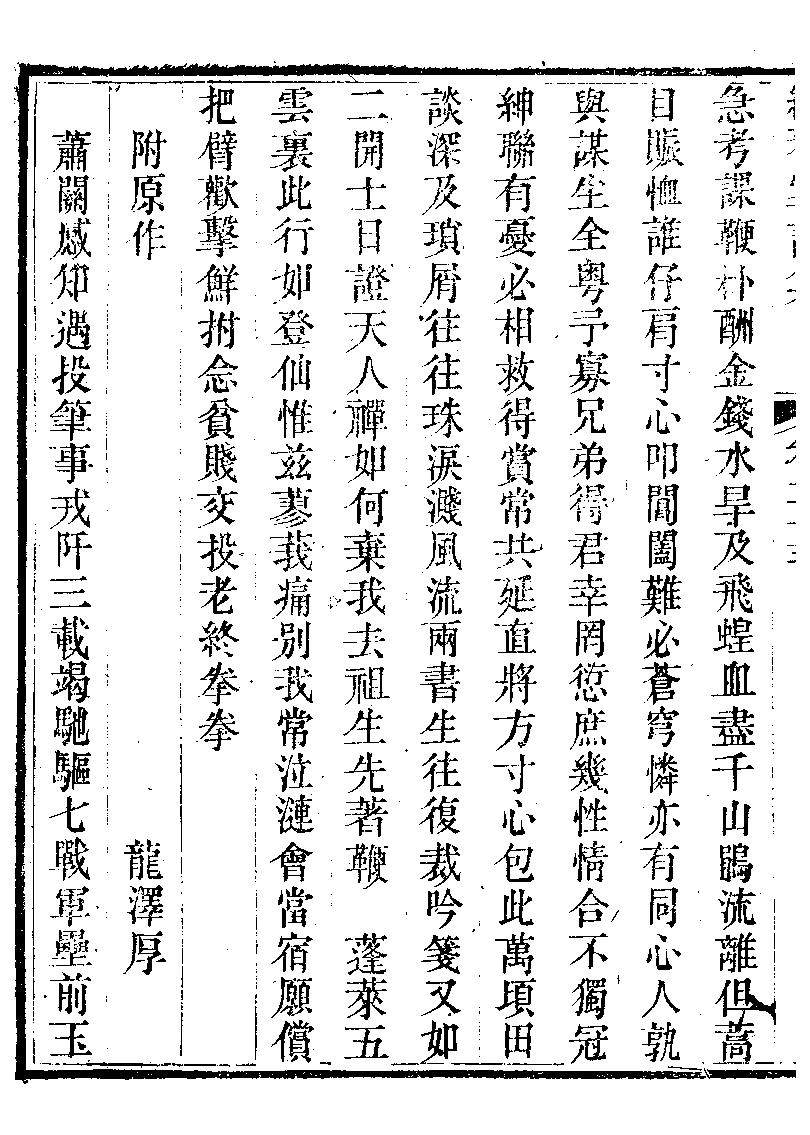 急考課鞭朴酬金錢水旱及飛蝗血盡千山鵑流離但蒿
目賑恤誰仔肩寸心叩閶闔難必蒼穹憐亦有同心人孰
與謀生全粵予寡兄弟得君幸罔愆庶幾性情合不獨冠
紳聯有憂必相救得賞常共延直將方寸心包此萬頃田
談深及瑣屑往往珠淚濺風流兩書生往復裁吟箋又如
二開士日證天人禪如何棄我去祖生先著鞭　蓬萊五
雲裏此行如登仙惟兹蓼莪痛別我常泣漣會當宿願償
把臂歡擊鮮拊念貧賤交投老終拳拳
附原作　龍澤厚
蕭關慼却遇投筆事戎阡三載竭馳驅七戰軍壘前玉